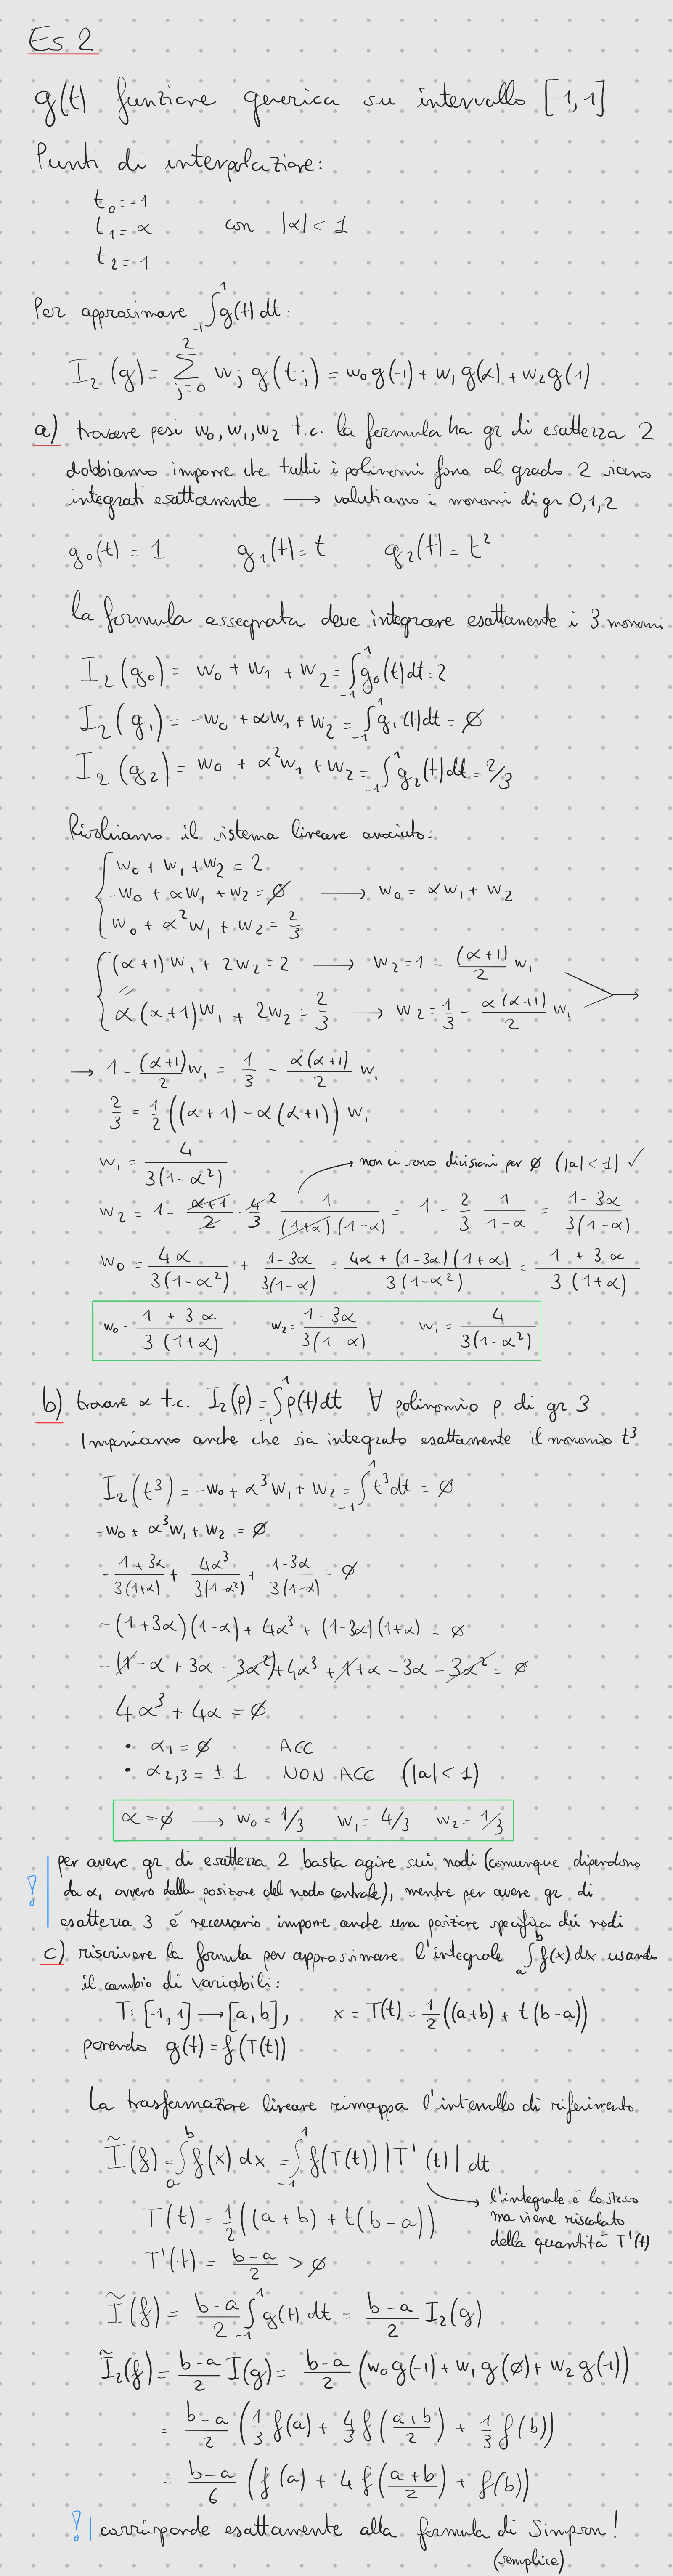 Es 2
g(t) funzione generica su intervallo [1,1]
Punti di interpolazione:
t₀=-1
t₁=α con |α|<1
t₂=1
Per approssimare ∫₋₁¹ g(t) dt:
I₂(g) = Σ_{j=0}^{2} w_j g(t_j) = w₀g(-1) + w₁g(α) + w₂g(1)
a) trovare pesi w₀,w₁,w₂ t.c. la formula ha gr di esattezza 2
dobbiamo imporre che tutti i polinomi fino al grado 2 siano
integrati esattamente → valutiamo i monomi di gr 0,1,2
g₀(t) = 1 g₁(t) = t g₂(t) = t²
la formula assegnata deve integrare esattamente i 3 monomi
I₂(g₀) = w₀ + w₁ + w₂ = ∫₋₁¹ g₀(t)dt = 2
I₂(g₁) = -w₀ + αw₁ + w₂ = ∫₋₁¹ g₁(t)dt = ∅
I₂(g₂) = w₀ + α²w₁ + w₂ = ∫₋₁¹ g₂(t)dt = 2/3
Risolviamo il sistema lineare associato:
w₀ + w₁ + w₂ = 2
-w₀ + αw₁ + w₂ = ∅ → w₀ = αw₁ + w₂
w₀ + α²w₁ + w₂ = 2/3
(α+1)w₁ + 2w₂ = 2 → w₂ = 1 - (α+1)/2 w₁
α(α+1)w₁ + 2w₂ = 2/3 → w₂ = 1/3 - α(α+1)/2 w₁ →
→ 1 - (α+1)/2 w₁ = 1/3 - α(α+1)/2 w₁
2/3 = 1/2((α+1) - α(α+1))w₁
w₁ = 4/(3(1-α²)) → non ci sono divisioni per ∅ (|α|<1) ✓
w₂ = 1 - (α+1)/2 · 4/3 ² 1/((1+α)(1-α)) = 1 - 2/3 1/(1-α) = (1-3α)/(3(1-α))
w₀ = 4α/(3(1-α²)) + (1-3α)/(3(1-α)) = (4α+(1-3α)(1+α))/(3(1-α²)) = (1+3α)/(3(1+α))
w₀ = (1+3α)/(3(1+α)) w₂ = (1-3α)/(3(1-α)) w₁ = 4/(3(1-α²))
b) trovare α t.c. I₂(p) = ∫₋₁¹ p(t)dt ∀ polinomio p di gr 3
Imponiamo anche che sia integrato esattamente il monomio t³
I₂(t³) = -w₀ + α³w₁ + w₂ = ∫₋₁¹ t³dt = ∅
-w₀ + α³w₁ + w₂ = ∅
-(1+3α)/(3(1+α)) + 4α³/(3(1-α²)) + (1-3α)/(3(1-α)) = ∅
-(1+3α)(1-α) + 4α³ + (1-3α)(1+α) = ∅
-(1-α+3α-3α²)+4α³+1+α-3α-3α² = ∅
4α³ + 4α = ∅
• α₁ = ∅ ACC
• α₂,₃ = ±1 NON ACC (|α|<1)
α=∅ → w₀ = 1/3 w₁ = 4/3 w₂ = 1/3
per avere gr di esattezza 2 basta agire sui nodi (comunque dipendono
da α, ovvero dalla posizione del nodo centrale), mentre per avere gr di
esattezza 3 è necessario imporre anche una posizione specifica dei nodi
c) riscrivere la formula per approssimare l'integrale ∫ₐᵇ f(x)dx usando
il cambio di variabili:
T: [-1,1] → [a,b], x = T(t) = 1/2((a+b) + t(b-a))
ponendo g(t) = f(T(t))
La trasformazione lineare rimappa l'intervallo di riferimento
Ĩ(f) = ∫ₐᵇ f(x)dx = ∫₋₁¹ f(T(t))|T'(t)|dt
T(t) = 1/2((a+b) + t(b-a))
→ l'integrale è lo stesso
ma viene riscalato
della quantità T'(t)
T'(t) = (b-a)/2 > ∅
Ĩ(f) = (b-a)/2 ∫₋₁¹ g(t)dt = (b-a)/2 I₂(g)
Ĩ₂(f) = (b-a)/2 I(g) = (b-a)/2 (w₀g(-1) + w₁g(∅) + w₂g(1))
= (b-a)/2 (1/3 f(a) + 4/3 f((a+b)/2) + 1/3 f(b))
= (b-a)/6 (f(a) + 4f((a+b)/2) + f(b))
! corrisponde esattamente alla formula di Simpson!
(semplice)